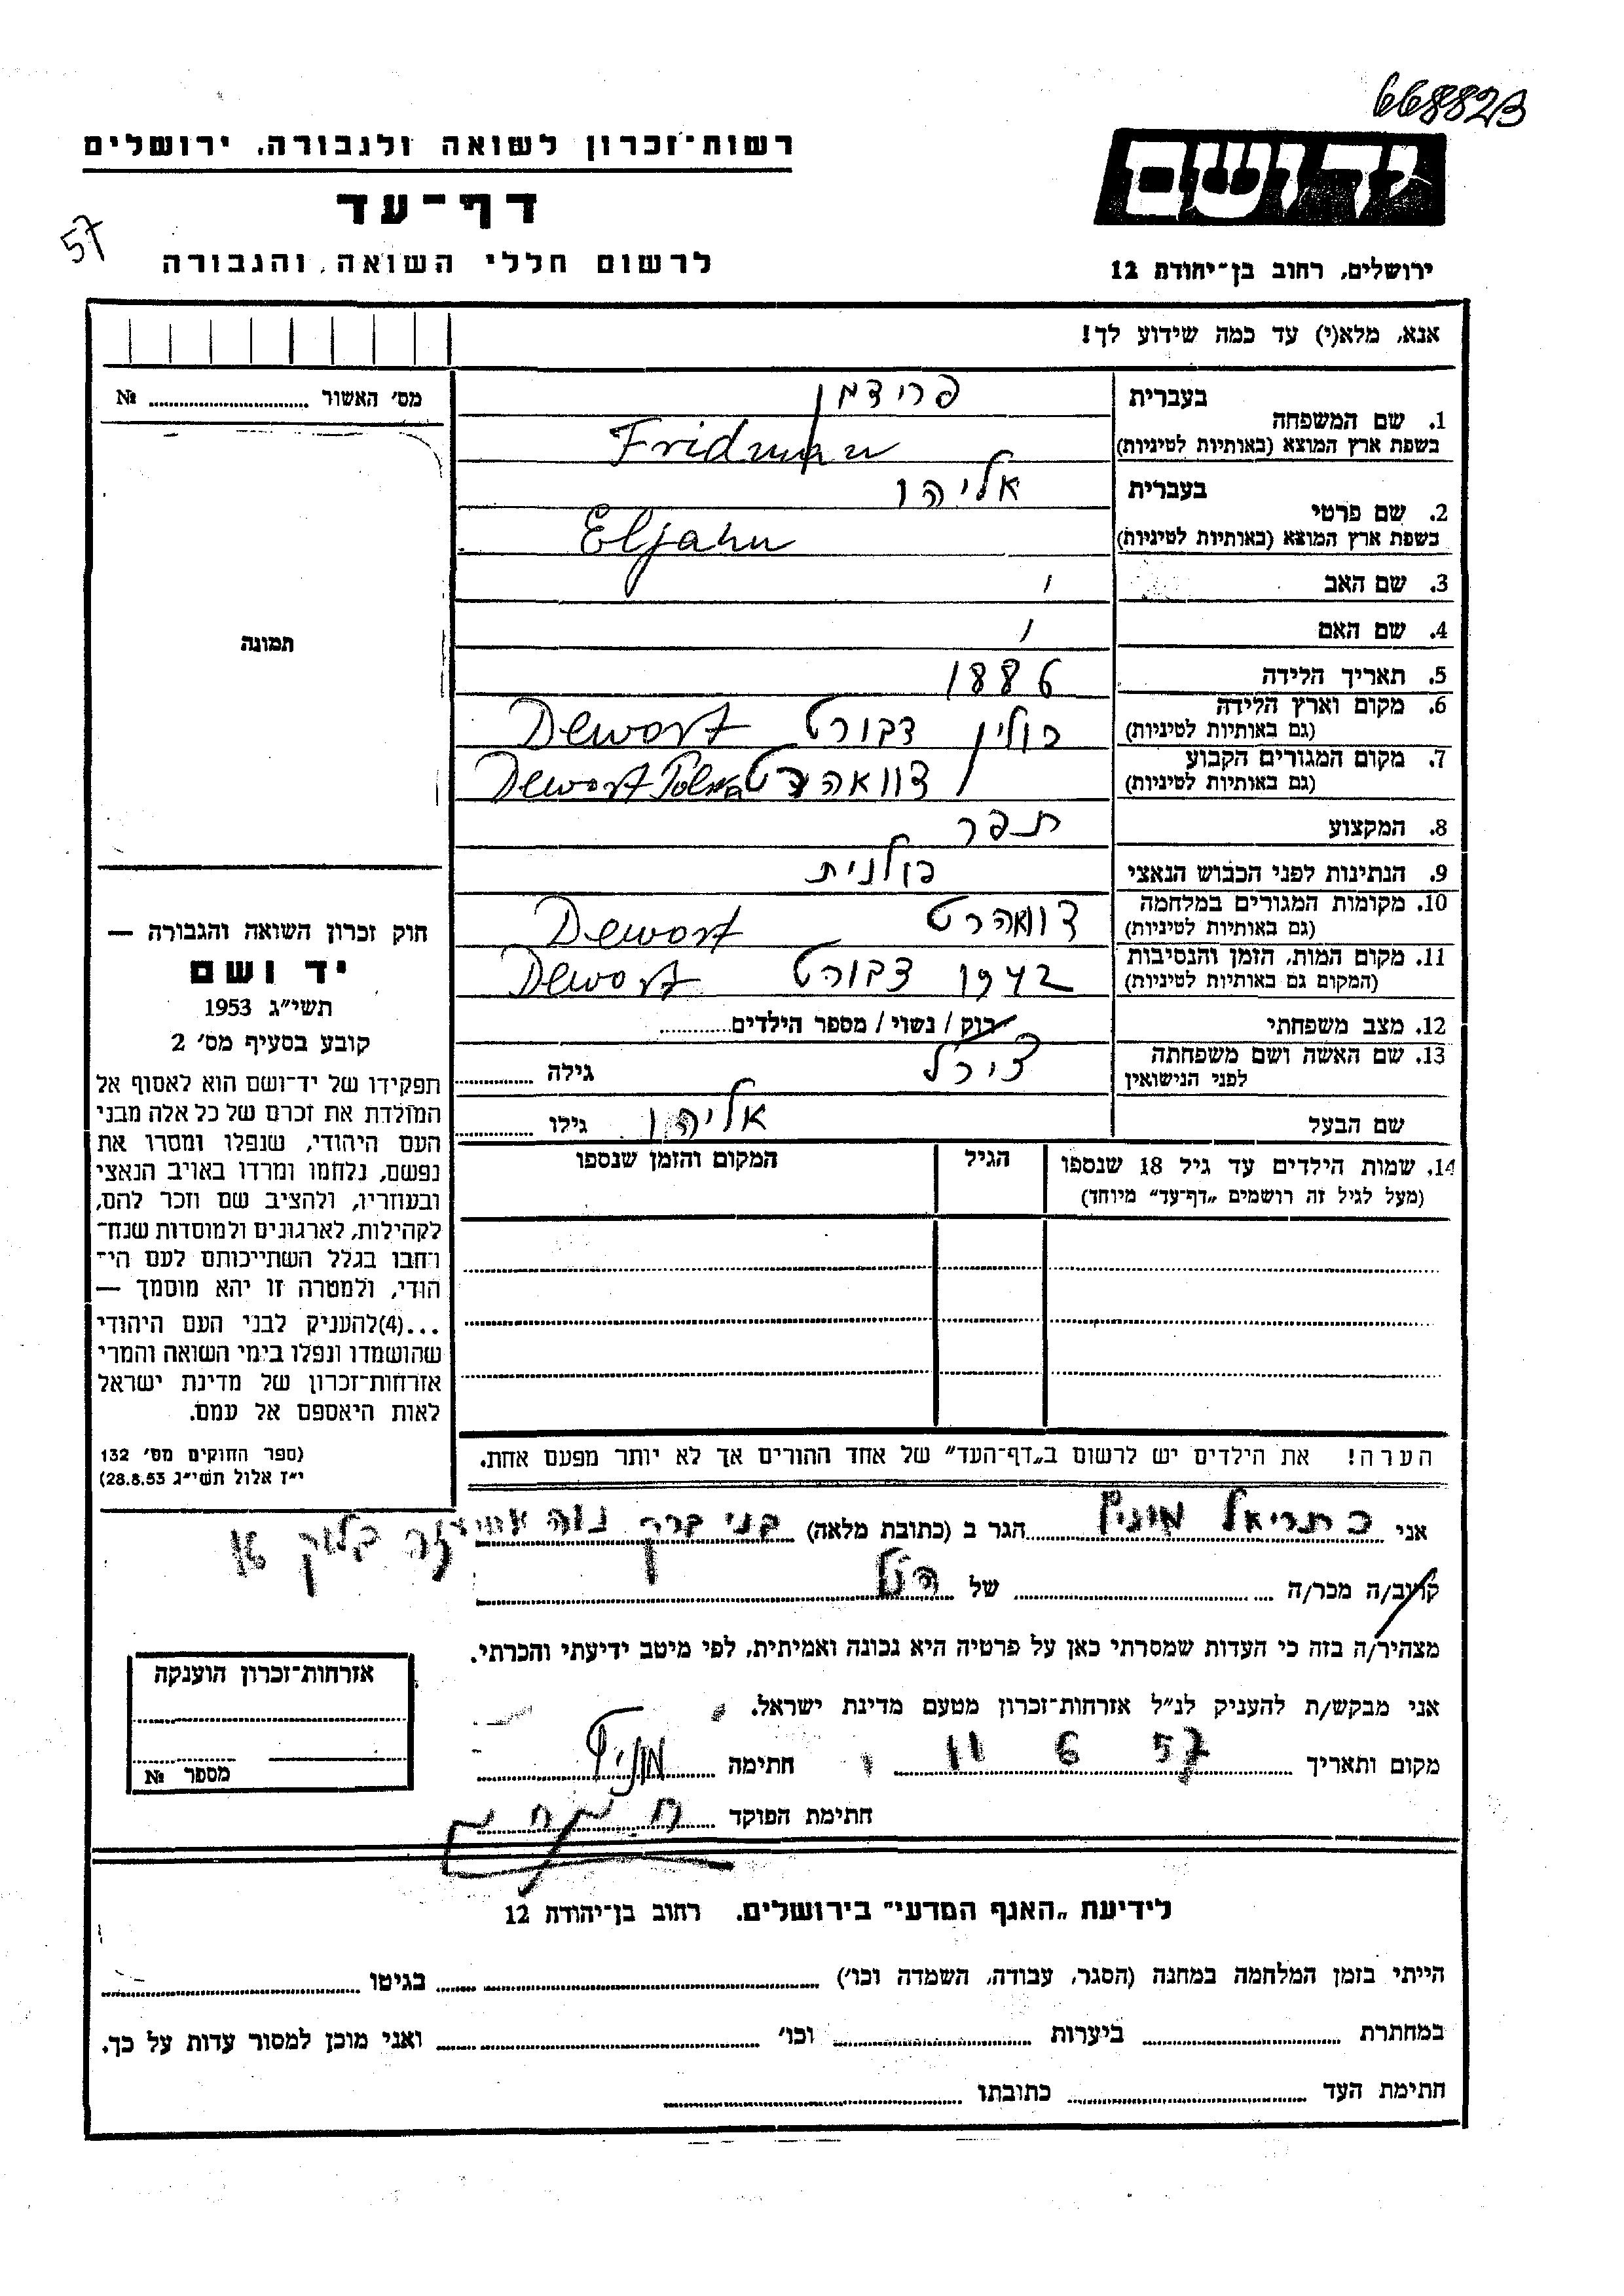 668823
ידושם
רשות־זכרון לשואה ולגבורה, ירושלים
דף־עד
57
לרשום חללי השואה והגבורה
ירושלים, רחוב בן־יהודה 12
אנא, מלא(י) עד כמה שידוע לך!
מס׳ האשור № 
1. שם המשפחה
בעברית פרידמן
בשפת ארץ המוצא (באותיות לטיניות) Fridman
2. שם פרטי
בעברית אליהו
בשפת ארץ המוצא (באותיות לטיניות) Eljahu
3. שם האב
4. שם האם
5. תאריך הלידה 1886
6. מקום וארץ הלידה
(גם באותיות לטיניות) פולין דבורט Dewort
7. מקום המגורים הקבוע
(גם באותיות לטיניות) Dewort
8. המקצוע תפר
9. הנתינות לפני הכבוש הנאצי פולנית
10. מקומות המגורים במלחמה
(גם באותיות לטיניות) Dewort
11. מקום המות, הזמן והנסיבות
(המקום גם באותיות לטיניות) 1942 דבורט Dewort
12. מצב משפחתי רווק / נשוי / מספר הילדים
13. שם האשה ושם משפחתה
לפני הנישואין גילה
שם הבעל אליהו גילו
14. שמות הילדים עד גיל 18 שנספו
(מעל לגיל זה רושמים „דף־עד״ מיוחד)
הגיל
המקום והזמן שנספו
תמונה
חוק זכרון השואה והגבורה —
יד ושם
תשי״ג 1953
קובע בסעיף מס׳ 2
תפקידו של יד־ושם הוא לאסוף אל
המולדת את זכרם של כל אלה מבני
העם היהודי, שנפלו ומסרו את
נפשם, נלחמו ומרדו באויב הנאצי
ובעוזריו, ולהציב שם וזכר להם,
לקהילות, לארגונים ולמוסדות שנח־
רבו בגלל השתייכותם לעם הי־
הודי, ולמטרה זו יהא מוסמך —
...(4)להעניק לבני העם היהודי
שהושמדו ונפלו בימי השואה והמרי
אזרחות־זכרון של מדינת ישראל
לאות היאספם אל עמם.
(ספר החוקים מס׳ 132
י״ז אלול תשי״ג 28.8.53)
הערה! את הילדים יש לרשום ב„דף־העד״ של אחד ההורים אך לא יותר מפעם אחת.
אני כתריאל הגר ב (כתובת מלאה) בני ברק נוה בלוק
קרוב/ה מכר/ה של הנ״ל
מצהיר/ה בזה כי העדות שמסרתי כאן על פרטיה היא נכונה ואמיתית, לפי מיטב ידיעתי והכרתי.
אני מבקש/ת להעניק לנ״ל אזרחות־זכרון מטעם מדינת ישראל.
מקום ותאריך 57 6 11 חתימה
חתימת הפוקד
אזרחות־זכרון הוענקה
מספר №
לידיעת „האגף המדעי״ בירושלים, רחוב בן־יהודה 12
הייתי בזמן המלחמה במחנה (הסגר, עבודה, השמדה וכו׳) בגיטו
במחתרת ביערות וכו׳ ואני מוכן למסור עדות על כך.
חתימת העד כתובתו